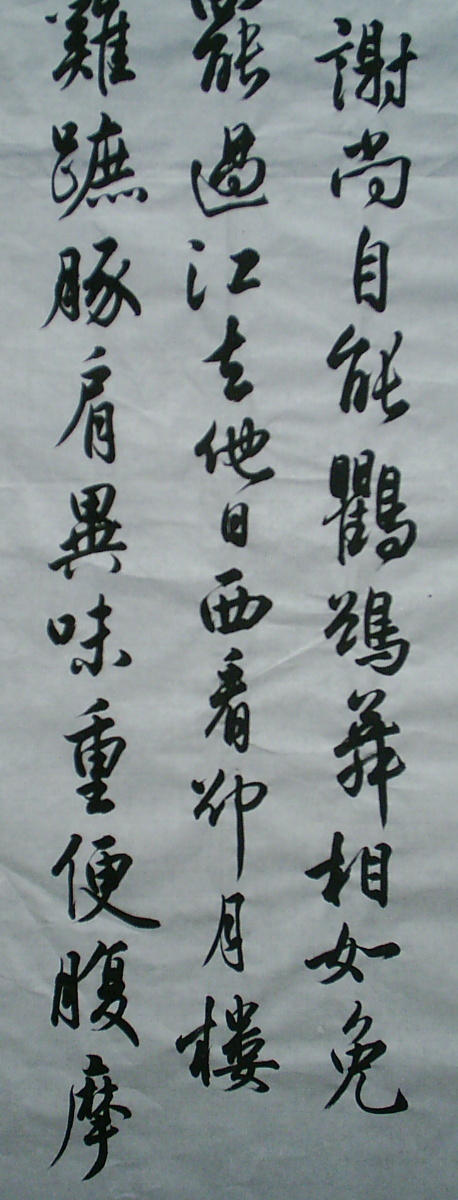 謝尚自能鸜鵒舞相如免
罷過江去他日西看却月樓
雞蹠豚肩異味重便腹摩